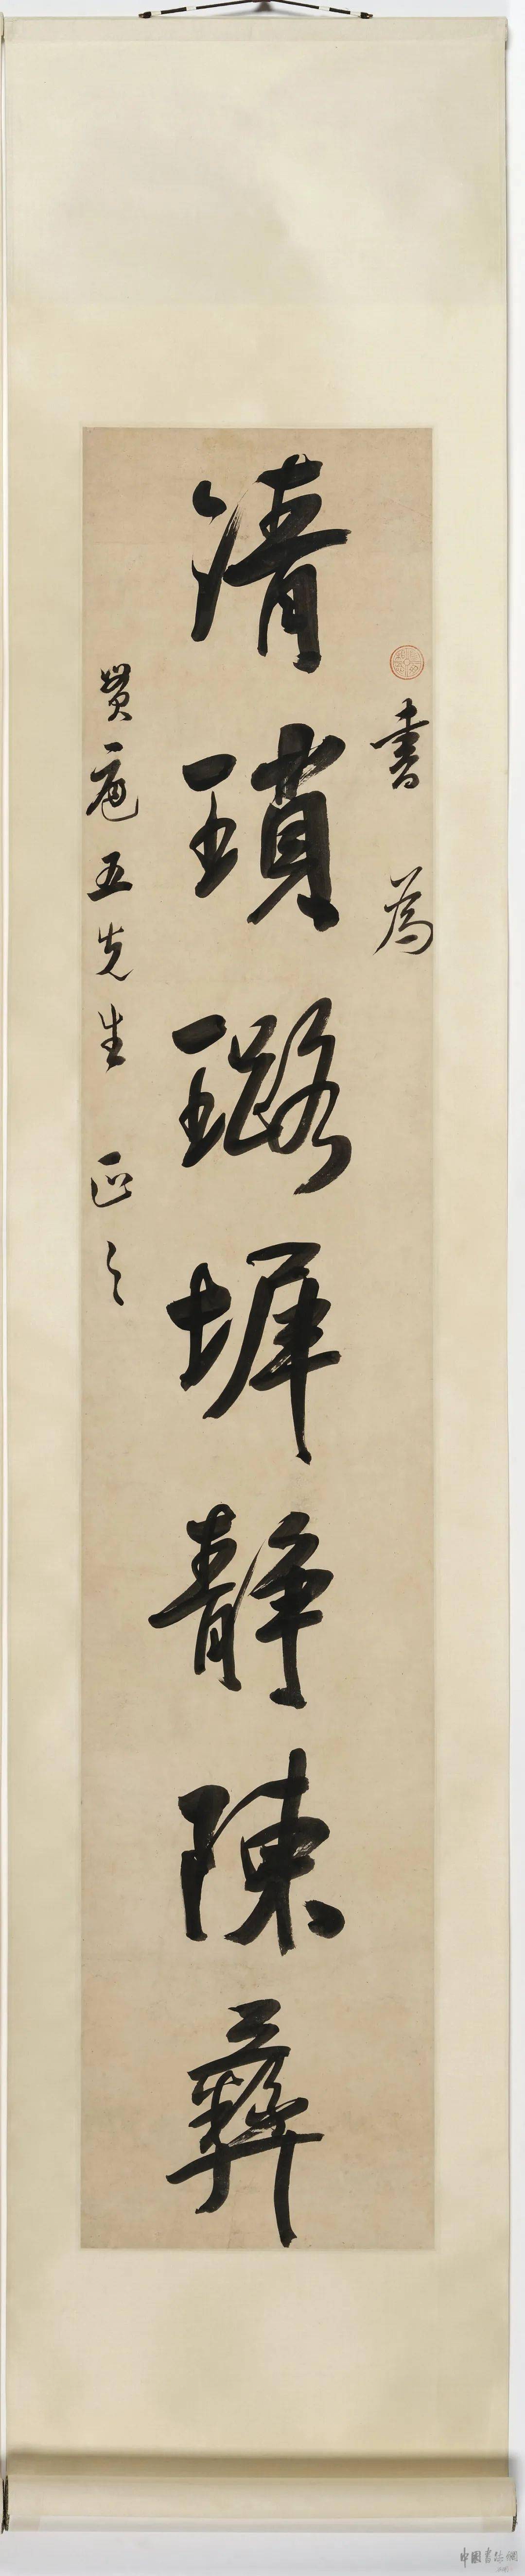 書為
清瑣璐墀静陳彝
五先生 正之
中國書法網